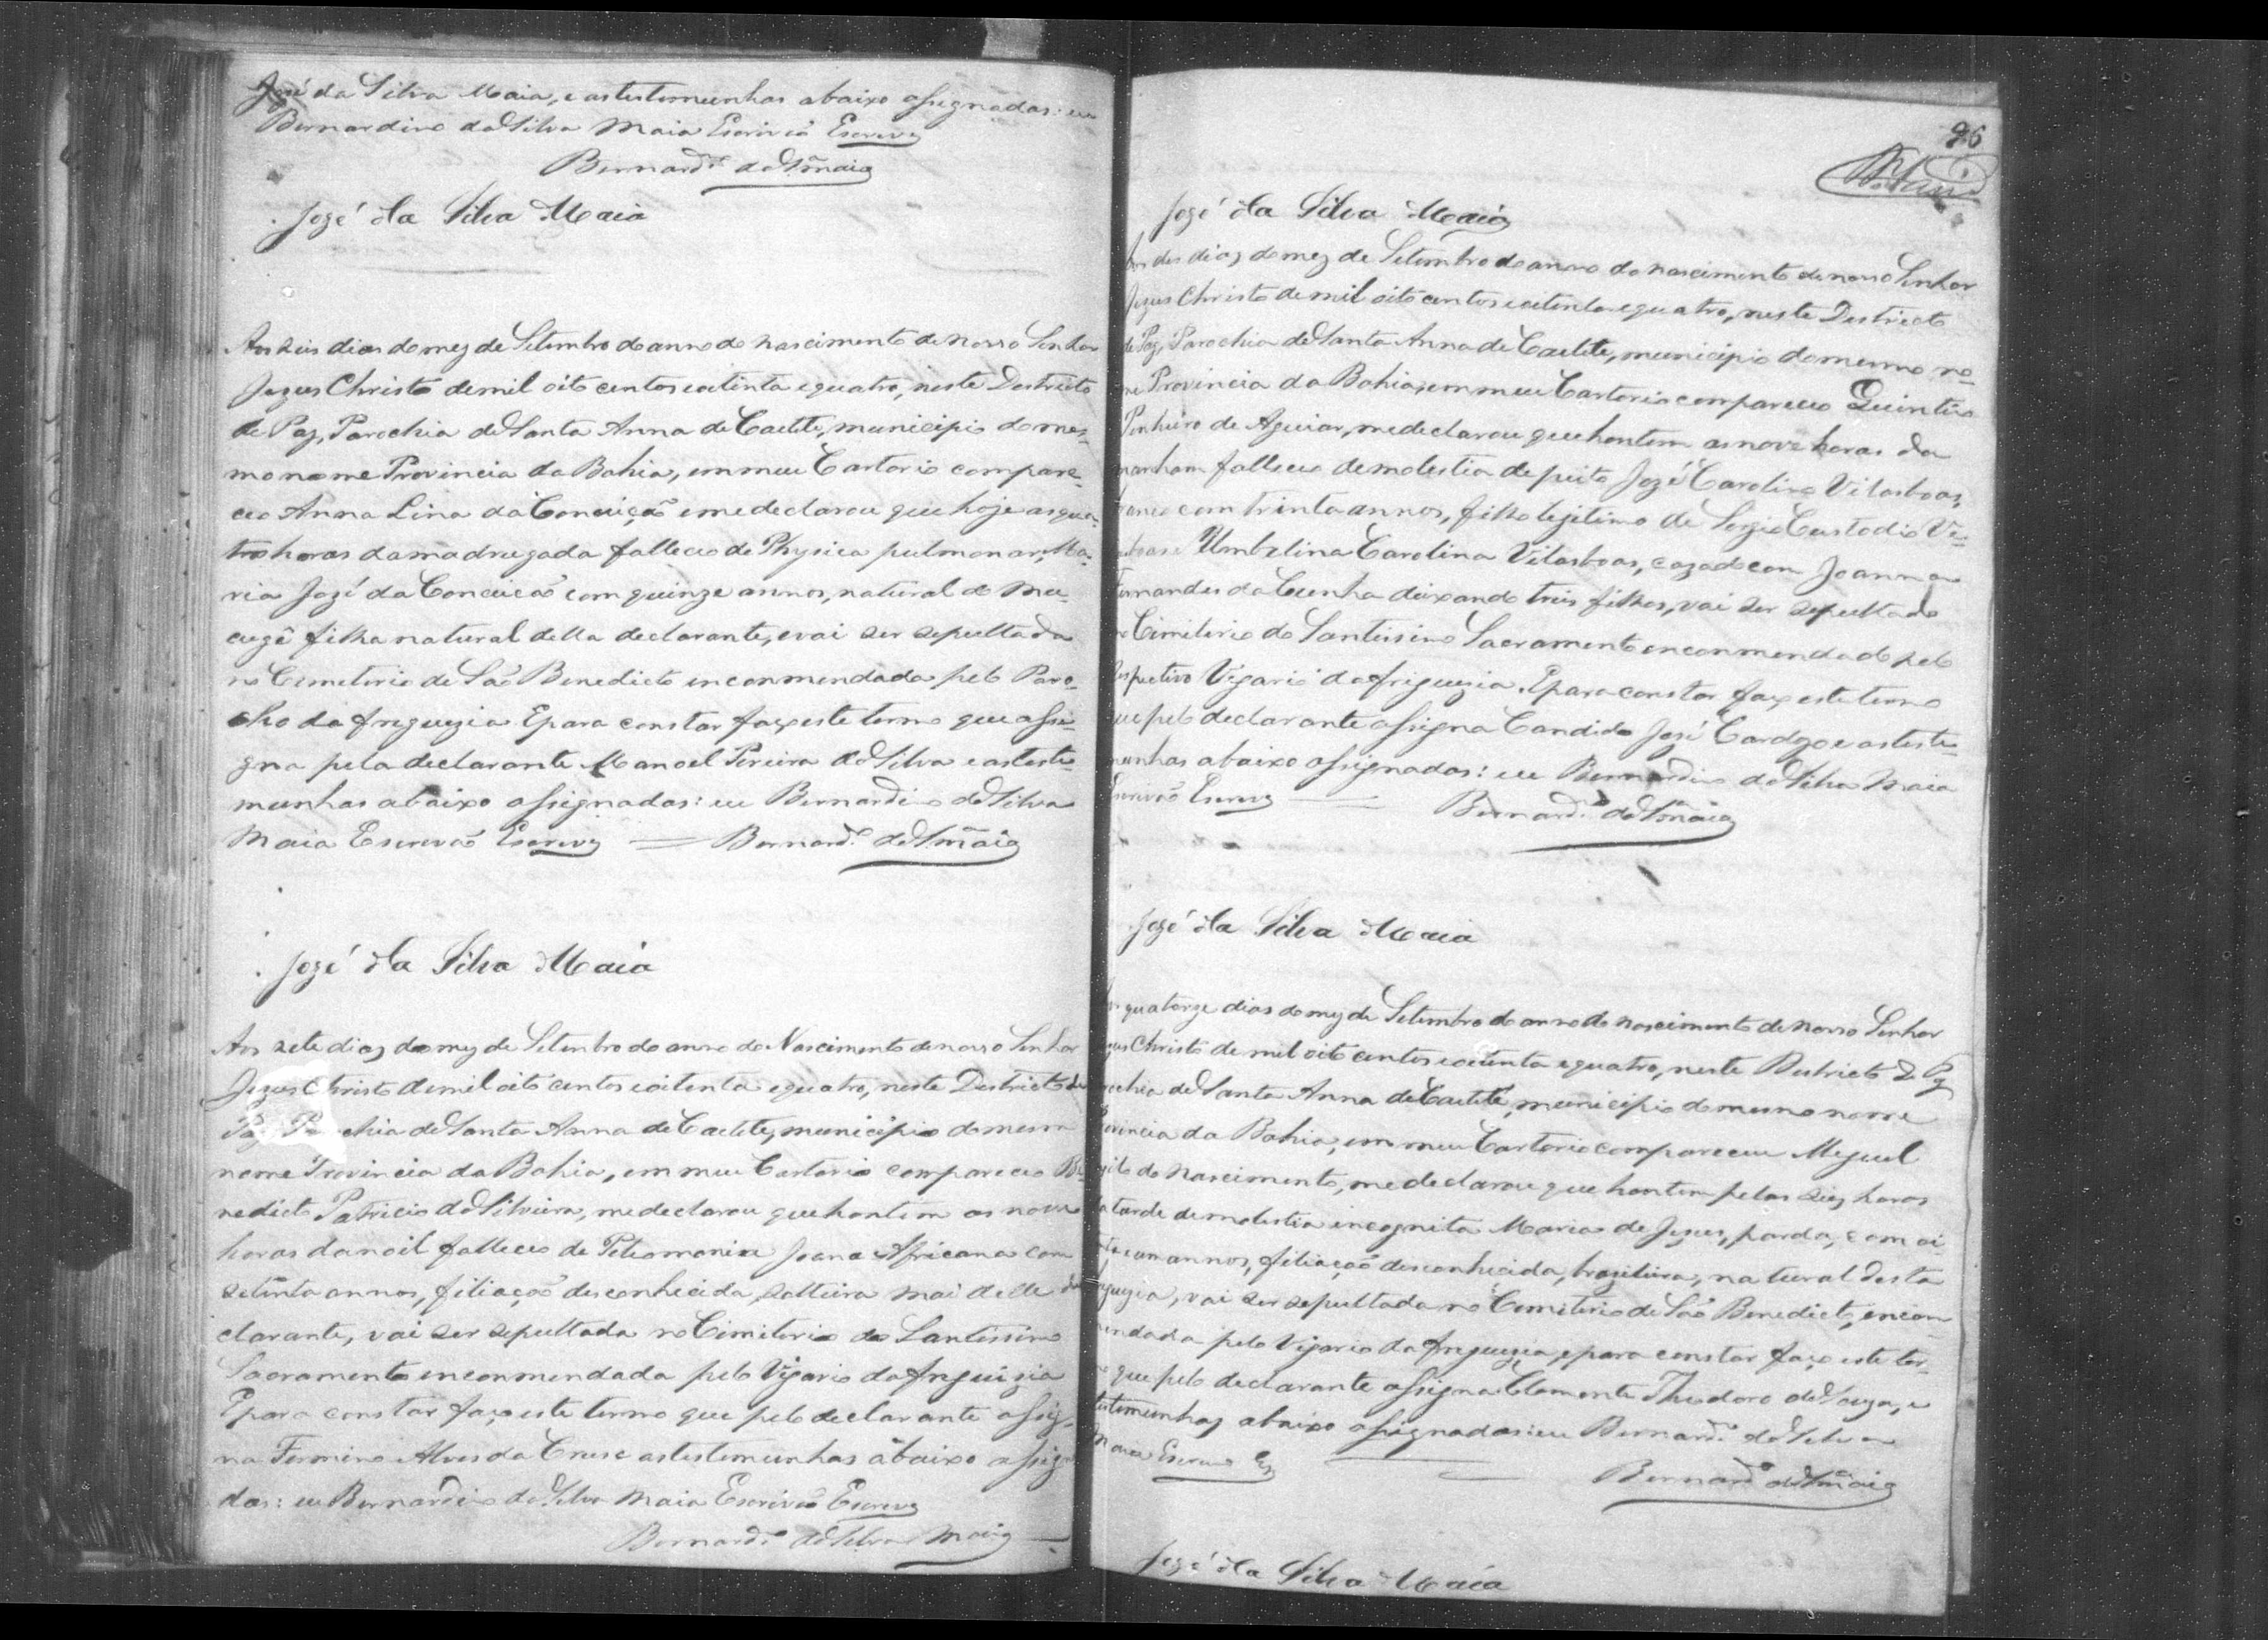 José da Silva Maia, e as testemunhas abaixo assignadas: eu
Bernardino da Silva Maia Escrivão Escrevy
Bernard.º da S.ª Maia
José da Silva Maia
Aos seis dias do mez de Setembro do anno do nascimento de Nosso Senhor
Jezus Christo de mil oito centos e oitinta e quatro, neste Destricto
de Paz, Parochia de Santa Anna de Caetité, municipio do mes-
mo nome Provincia da Bahia, em meu Cartorio compare-
ceo Anna Lina da Conceição e me declarou que hoje as qua-
tro horas da madrugada falleceo de Physica pulmonar, Ma-
ria José da Conceicão com quinze annos, natural do Mu-
cugê filha natural della declarante, e vai ser sepultada
no Cemeterio de São Benedicto enconmendada pelo Paro-
cho da freguezia E para constar faço este termo que assi-
gna pela declarante Manoel Pereira da Silva e as teste-
munhas abaixo assignadas: eu Bernardino da Silva
Maia Escrivão Escrevy — Bernard.º da S.ª Maia
José da Silva Maia
Aos sete dias do mez de Setembro do anno do Nascimento de nosso Senhor
Jezus Christo de mil oito centos e oitenta e quatro, neste Destricto de
Paz Parochia de Santa Anna de Caetité, municipio do mesmo
nome Provincia da Bahia, em meu Cartorio compareceo Be-
nedicto Patricio da Silveira, me declarou que hontem as nove
horas da noit falleceo de Joana Africana com
setenta annos, filiação desconhecida, solteira mai delle de-
clarante, vai ser sepultada no Cimiterio do Santissimo
Sacramento enconmendada pelo Vigario da freguizia
E para constar faço este termo que pelo declarante assig-
na Fermino Alves da Cruz e as testemunhas abaixo assigna-
das: eu Bernardino da Silva Maia Escrivão Escrevy
Bernard.º da Silva Maia
96
José da Silva Maia
Aos des dias do mez de Setembro do anno do nascimento de nosso Senhor
Jezus Christo de mil oito centos e oitenta e quatro, neste Destricto
de Paz, Parochia de Santa Anna de Caetité, municipio do mesmo no-
me Provincia da Bahia, em meu Cartorio compareceo Quintino
Pinheiro de Aguiar, me declarou que hontem as nove horas da
manham falleceo de molestia de peito José Carolino Vilasboas,
branco com trinta annos, filho legitimo de Sergio Custodio Vi-
lasboas e Umbelina Carolina Vilasboas, cazado com Joanna
Fernandes da Cunha deixando treis filhos, vai ser sepultado
no Cimiterio do Santissimo Sacramento enconmendado pelo
respectivo Vigario da freguezia. E para constar faço este termo
que pelo declarante assigna Candido José Cardozo e as teste-
munhas abaixo assignadas: eu Bernardino da Silva Maia
Escrivão Escrevy — Bernard.º da S.ª Maia
José da Silva Maia
Aos quatorze dias do mez de Setembro do anno do nascimento de Nosso Senhor
Jezus Christo de mil oito centos e oitenta e quatro, neste Destricto de Paz
Parochia de Santa Anna de Caetité, municipio do mesmo nome
Provincia da Bahia, em meu Cartorio compareceu Miguel
do Nascimento, me declarou que hontem pelas seis horas
da tarde de molestia incognita Maria de Jezus, parda, com oi-
tenta annos, filiação desconhecida, brazileira, natural desta
freguezia, vai ser sepultada no Cemiterio de São Benedicto, encon-
mendada pelo Vigario da freguezia, e para constar faço este ter-
mo que pelo declarante assigna Clemente Theodoro de Souza, e
testemunhas abaixo assignadas: eu Bernard.º da Silva
Maia Escrivão
Bernard.º da S.ª Maia
José da Silva Maia